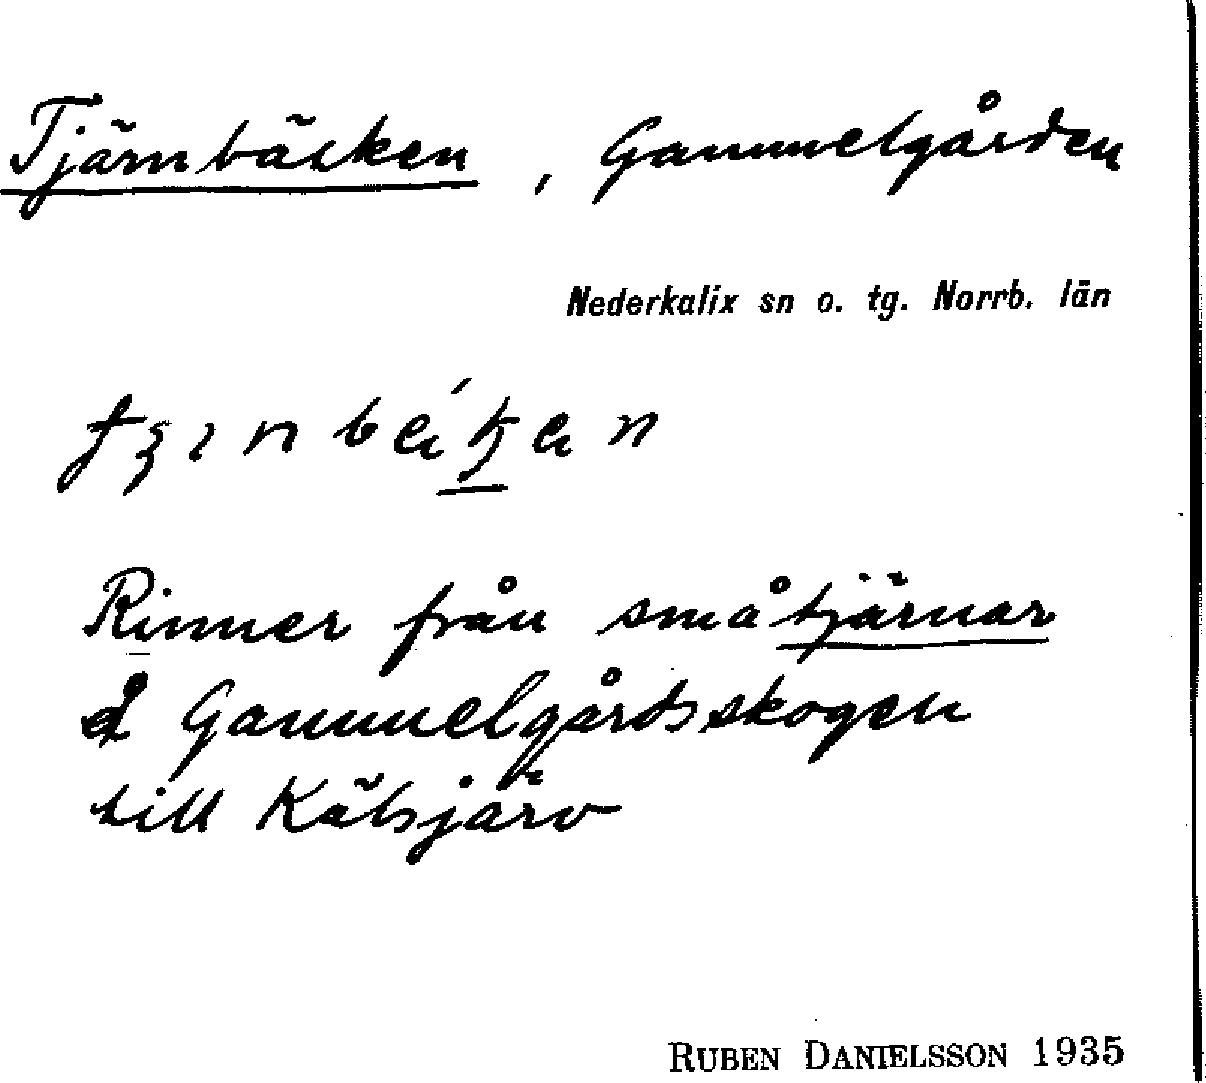 Tjärnbäcken, Gammelgården
Nederkalix sn o. tg. Norrb. län
Rinner från småtjärnar
å Gammelgårdsskogen
till Kälsjärv
RUBEN DANIELSSON 1935